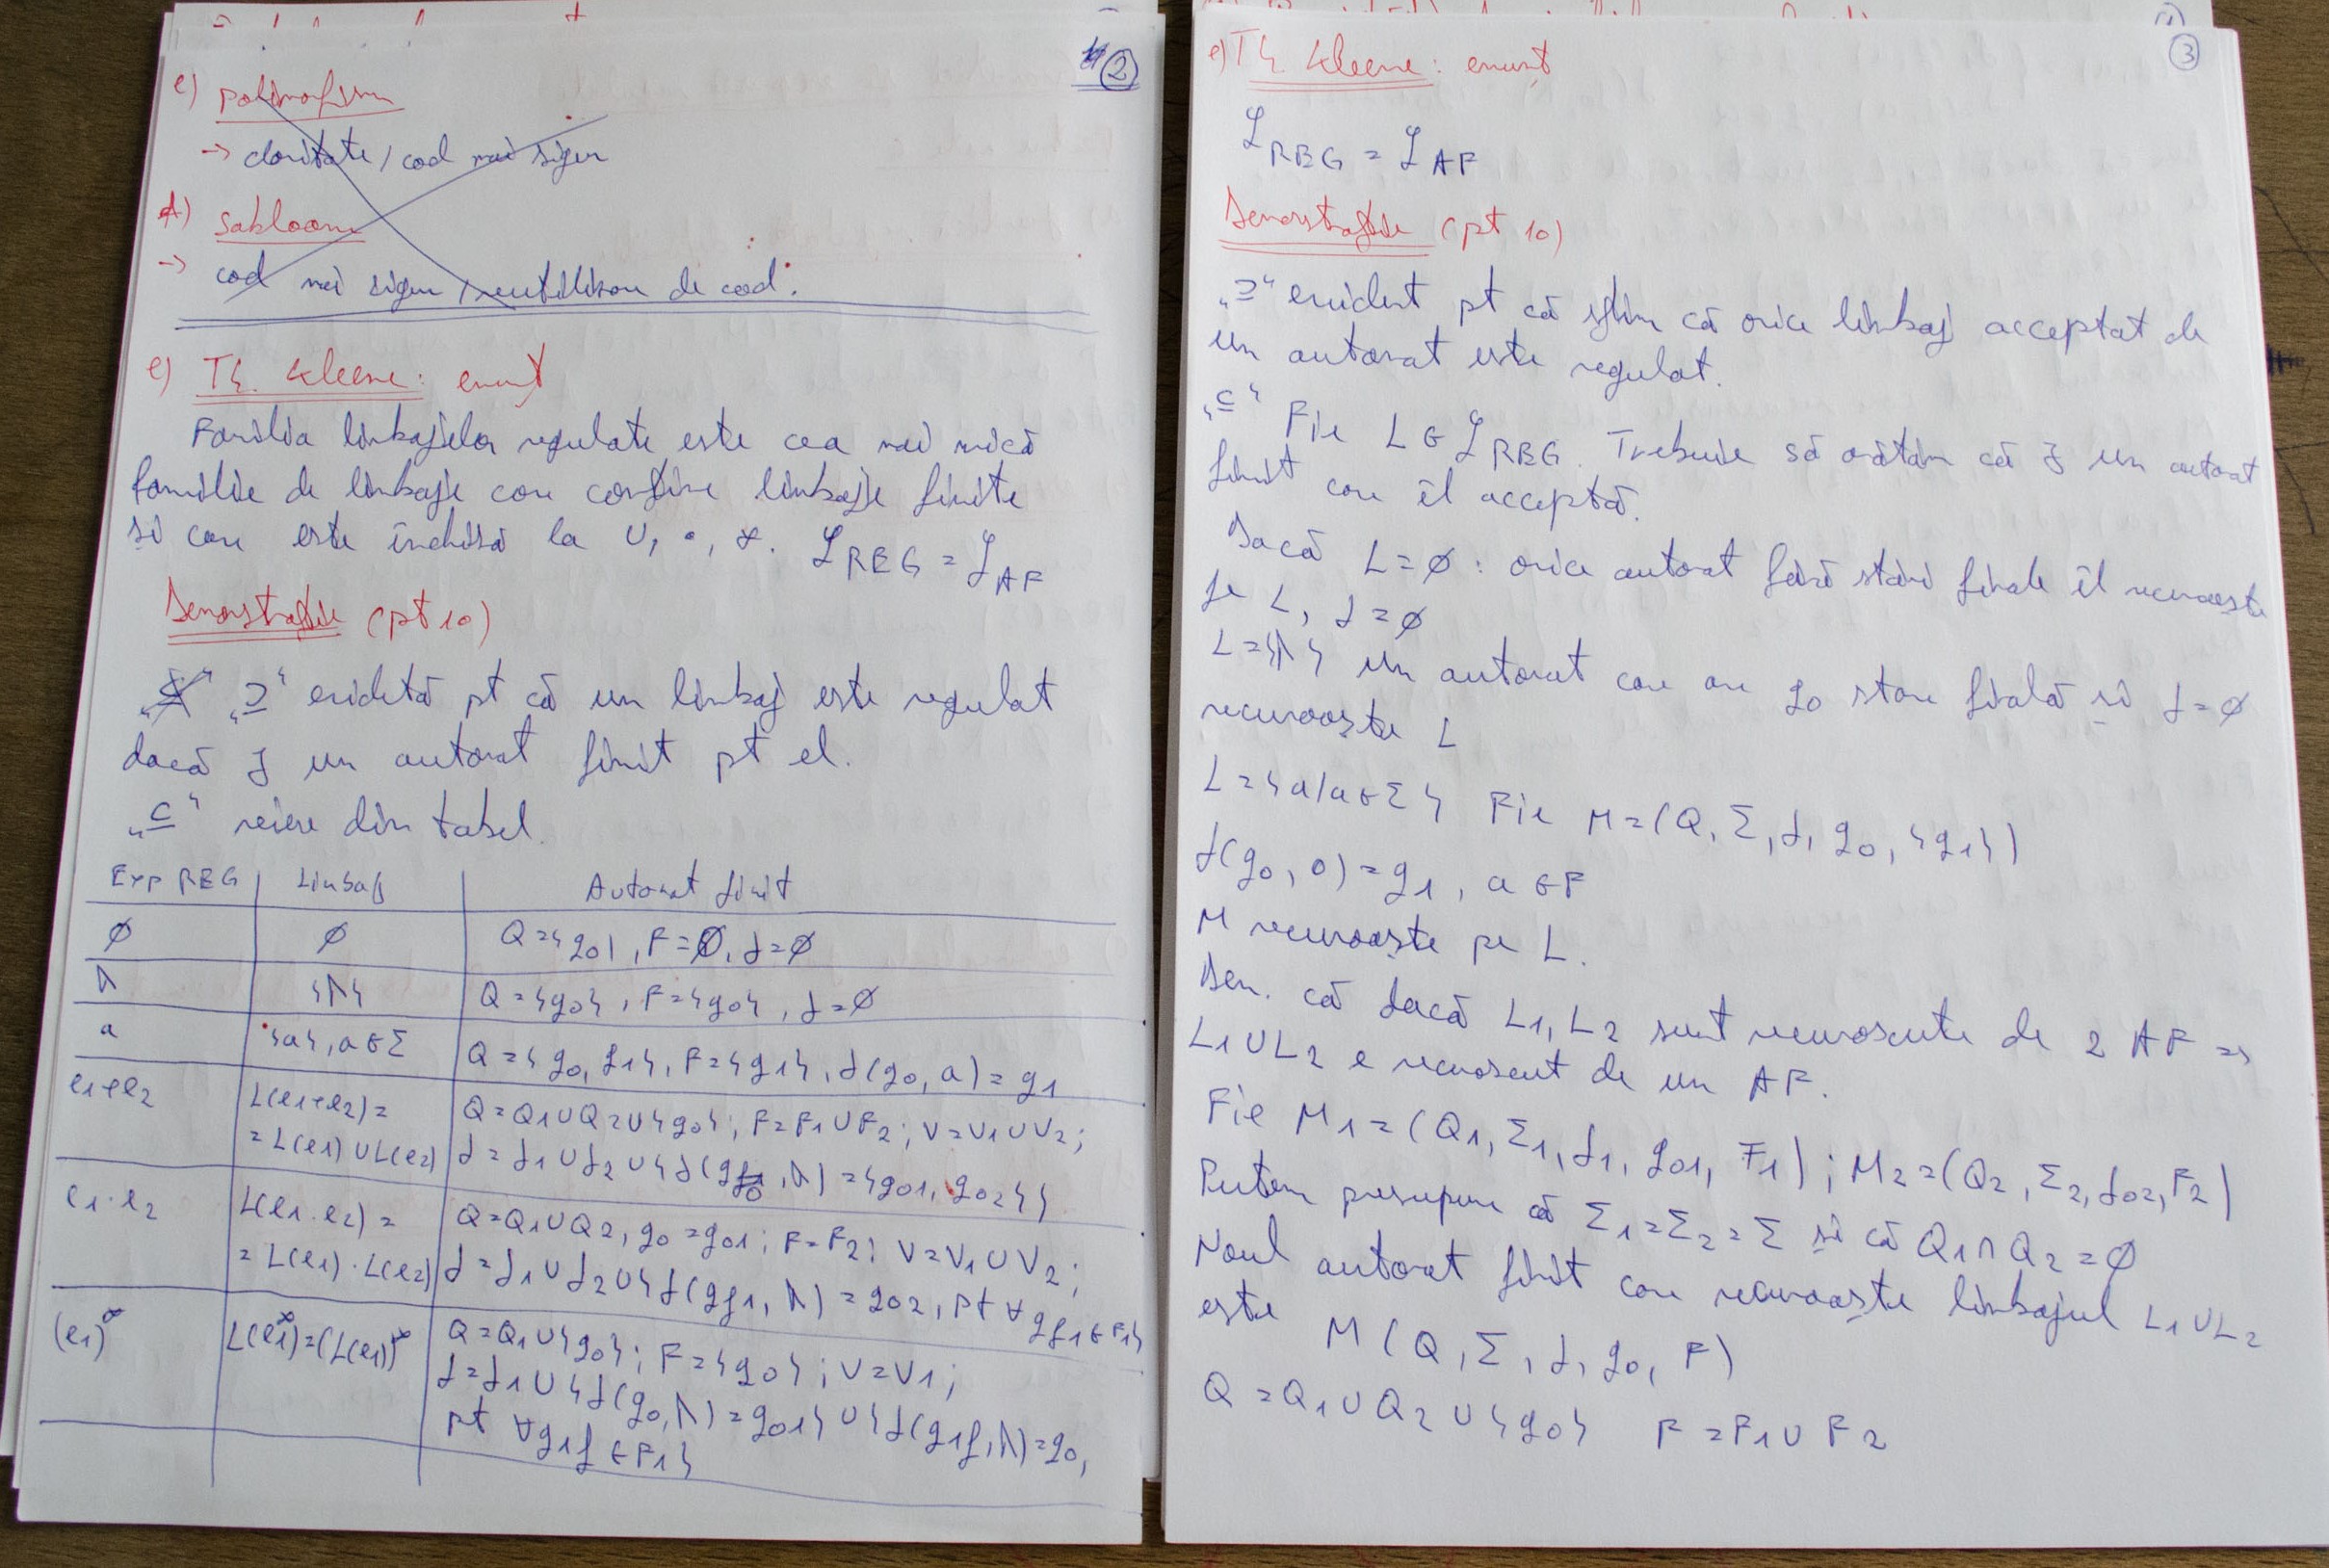 ②
c) polimorfism
→ claritate / cod mai sigur
d) sabloane
→ cod mai sigur / reutilizare de cod.
e) Th. Kleene: enunț
Familia limbajelor regulate este cea mai mică
familie de limbaje care conține limbaje finite
și care este închisă la ∪, •, *. ℒREG = ℒAF
Demonstrație (pt 10)
„⊇“ evidetă pt că un limbaj este regulat
dacă ∃ un automat finit pt el.
„⊆“ reiese din tabel.
Exp REG | Limbaj | Automat finit
∅ | ∅ | Q={q0}, F=∅, δ=∅
λ | {λ} | Q={q0}, F={q0}, δ=∅
a | {a}, a∈Σ | Q={q0, q1}, F={q1}, δ(q0, a)=q1
e1+e2 | L(e1+e2)= | Q=Q1∪Q2∪{q0}; F=F1∪F2; V=V1∪V2;
=L(e1)∪L(e2) | δ=δ1∪δ2∪{δ(q0, λ)={q01, q02}}
e1·e2 | L(e1·e2)= | Q=Q1∪Q2, q0=q01; F=F2; V=V1∪V2;
=L(e1)·L(e2) | δ=δ1∪δ2∪{δ(qf1, λ)=q02, pt ∀qf1∈F1}
(e1)* | L(e1*)=(L(e1))* | Q=Q1∪{q0}; F={q0}; V=V1;
δ=δ1∪{δ(q0,λ)=q01}∪{δ(q1f,λ)=q0,
pt ∀q1f∈F1}
③
e) Th. Kleene: enunț
ℒREG = ℒAF
Demonstrație (pt 10)
„⊇“ evident pt că știm că orice limbaj acceptat de
un automat este regulat.
„⊆“ Fie L∈ℒREG. Trebuie să arătăm că ∃ un automat
finit care îl acceptă.
Dacă L=∅: orice automat fără stări finale îl recunoaște
pe L, δ=∅
L={λ} un automat care are q0 stare finală și δ=∅
recunoaște L
L={a/a∈Σ} Fie M=(Q, Σ, δ, q0, {q1})
δ(q0, a)=q1, a∈F
M recunoaște pe L.
Dem. că dacă L1, L2 sunt recunoscute de 2 AF ⇒
L1∪L2 e recunoscut de un AF.
Fie M1=(Q1, Σ1, δ1, q01, F1); M2=(Q2, Σ2, δ02, F2)
Putem presupune că Σ1=Σ2=Σ și că Q1∩Q2=∅
Noul automat finit care recunoaște limbajul L1∪L2
este M(Q, Σ, δ, q0, F)
Q=Q1∪Q2∪{q0} F=F1∪F2